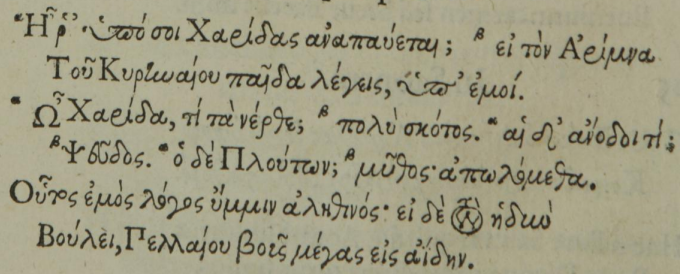 ᵅ Ἦ ῥ’ ὑπό σοι Χαρίδας ἀναπαύεται; ᵝ εἰ τὸν Ἀρίμνα
Τοῦ Κυρηναίου παῖδα λέγεις, ὑπ’ ἐμοί.
ᵅ Ὦ Χαρίδα, τί τὰ νέρθε; ᵝ πολὺ σκότος. ᵅ αἱ δ’ ἄνοδοι τί;
ᵝ Ψεῦδος. ᵅ ὁ δὲ Πλούτων; ᵝ μῦθος· ἀπωλόμεθα.
Οὗτος ἐμὸς λόγος ὔμμιν ἀληθινός· εἰ δὲ τὸν ἡδὺν
Βούλει, Πελλαίου βοῦς μέγας εἰς ἀΐδην.